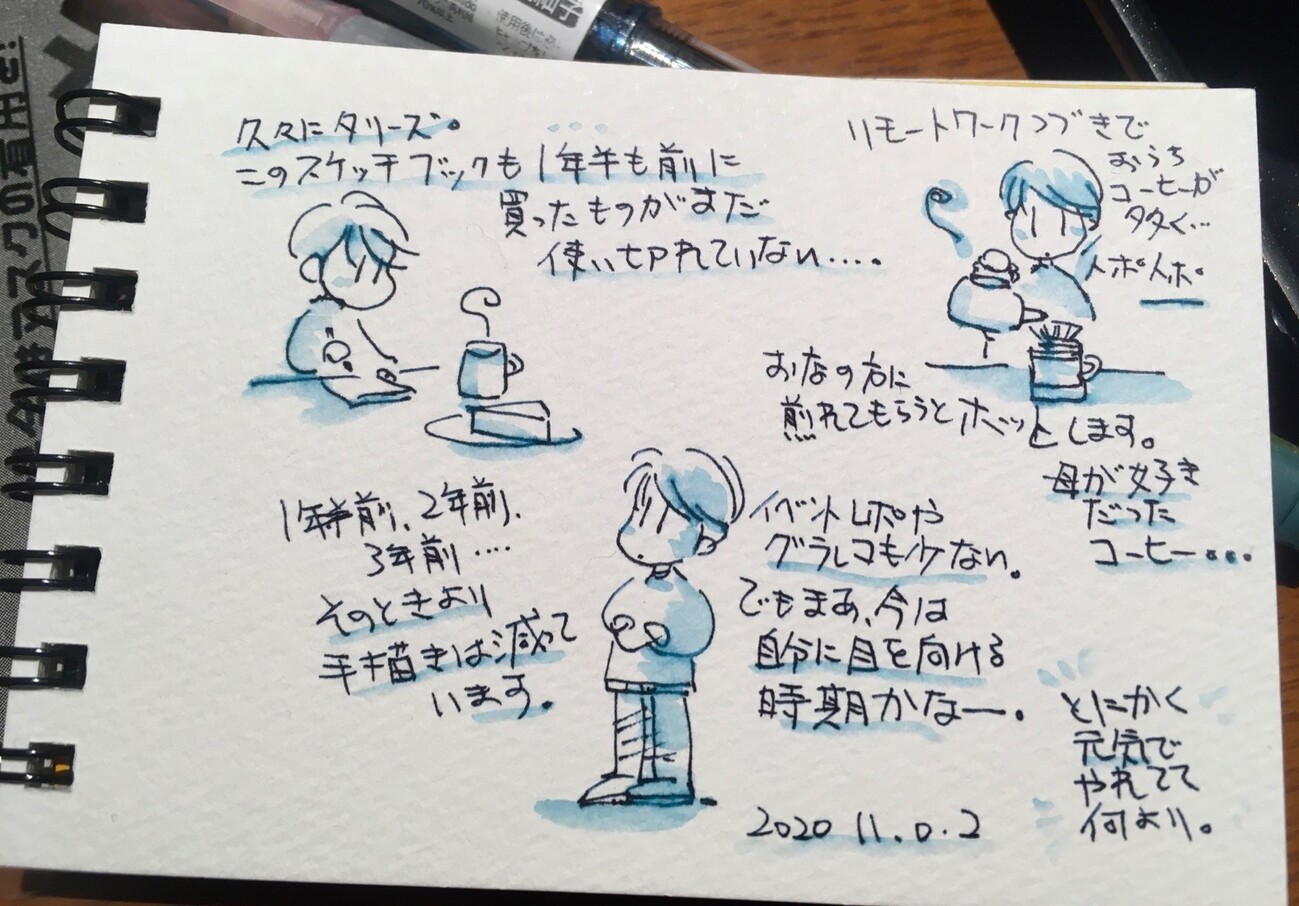 久々にタリーズ。
このスケッチブックも1年半も前に
買ったものがまだ
使い切れていない....。
リモートワークつづきで
おうち
コーヒーが
多く...
トポトポ
お店の方に
煎れてもらうとホッとします。
母が好き
だった
コーヒー...
1年半前、2年前、
3年前....
そのときより
手描きは減って
います。
イベントレポや
グラレコも少ない。
でもまあ、今は
自分に目を向ける
時期かなー。
とにかく
元気で
やれてて
何より。
2020 11.0.2
使用後は